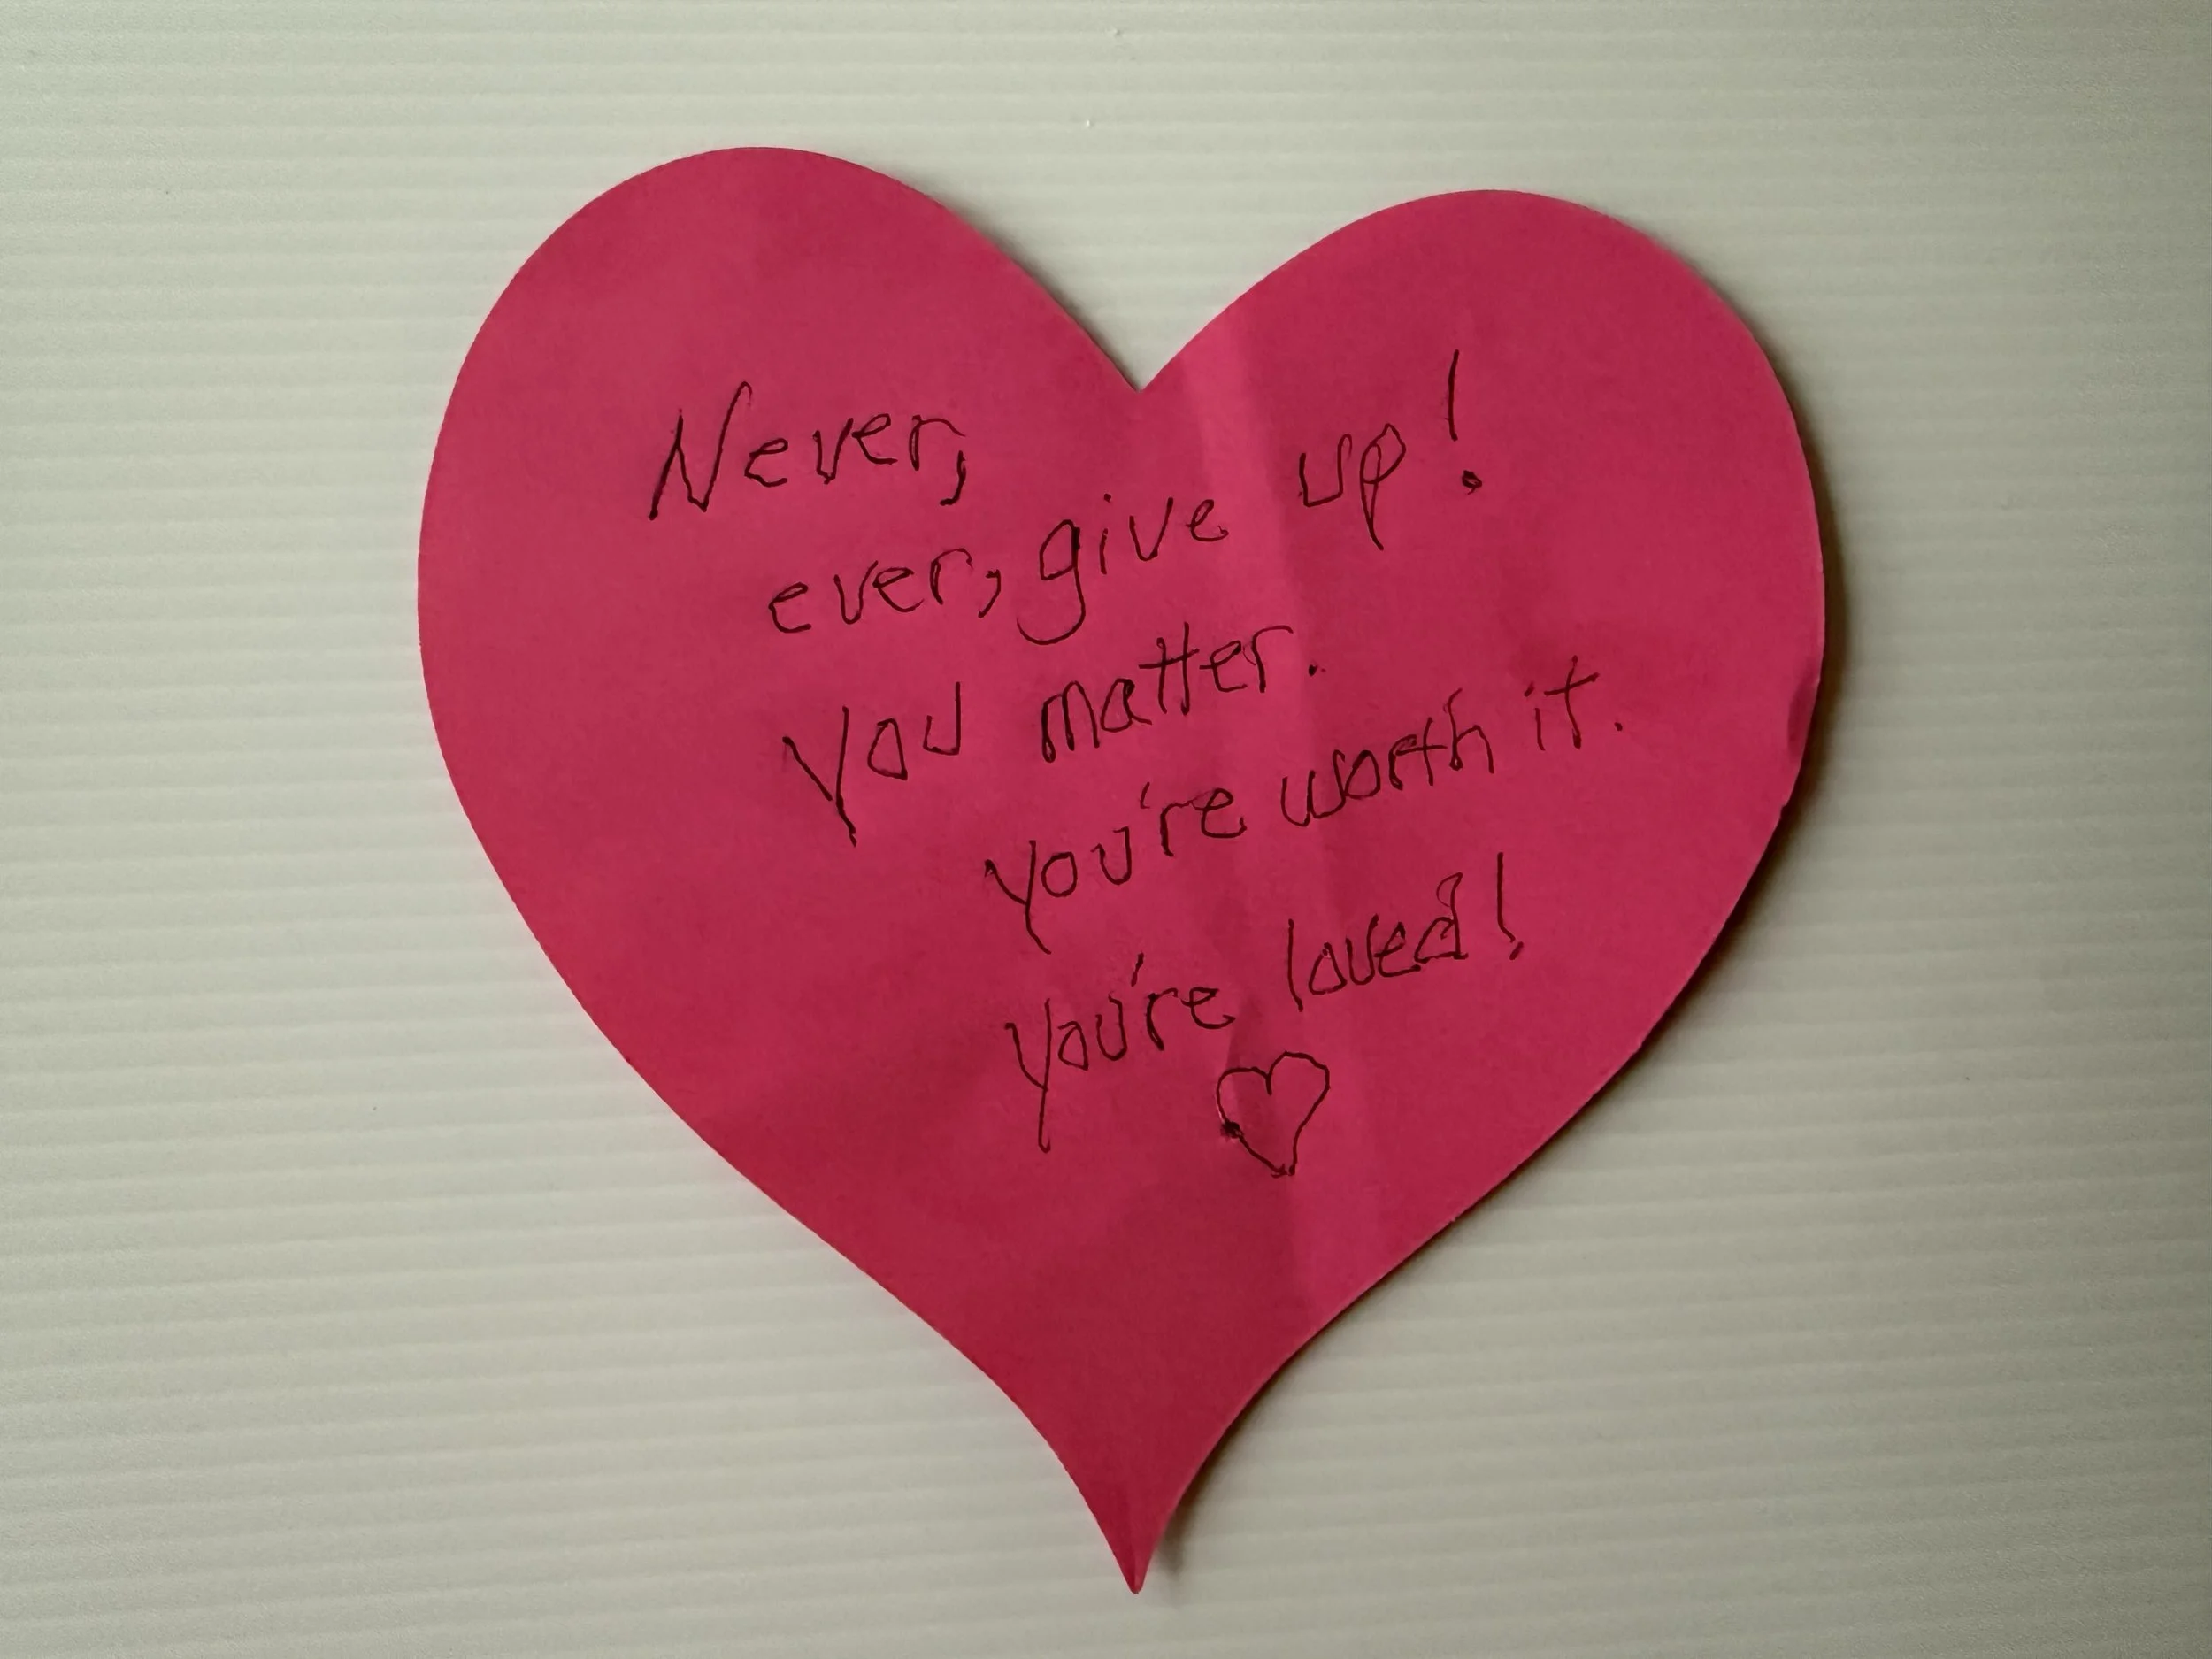 Never,
ever, give up!
You matter.
you're worth it.
you're loved!